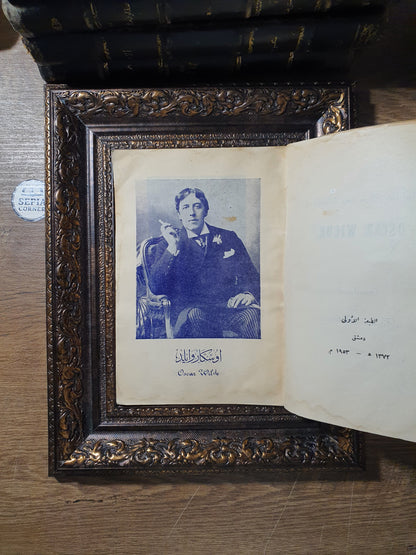 SEPIA
CORNER
اوسكار وايلد
Oscar Wilde
OSCAR WILDE
الطبعة الأولى
دمشق
١٣٧٢ هـ — ١٩٥٣ م